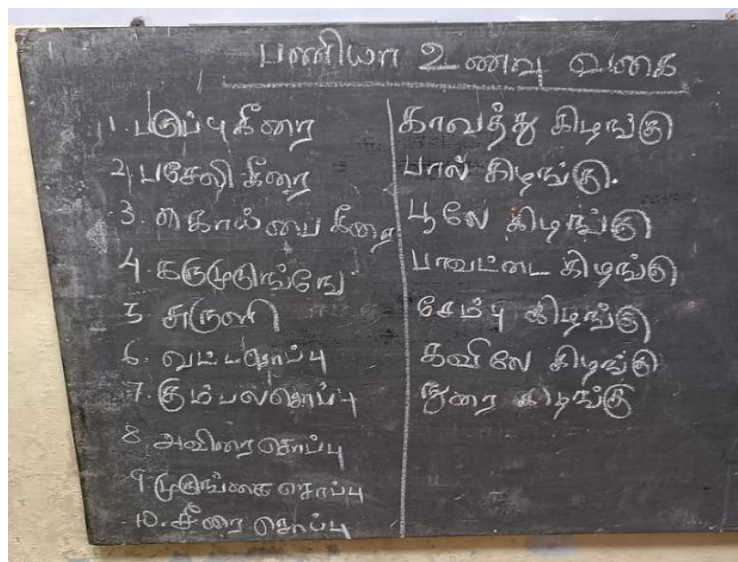 பணியா உணவு வகை
1. பருப்பு கீரை
2, பசேலி கீரை
3. கொய்பை கீரை
4. கருமுருங்ஙே
5 சுருளி
6. வட்டசொப்பு
7. கும்பலசொப்பு
8. அவிரை சொப்பு
9. முருங்கை சொப்பு
10. சீரை சொப்பு
காவத்து கிடிங்கு
பால் கிழங்கு.
பூலே கிடிங்கு
பாவட்டை கிழங்கு
சேம்பு கிடிங்கு
கவிலே கிடிங்கு
நுரை கிடிங்கு